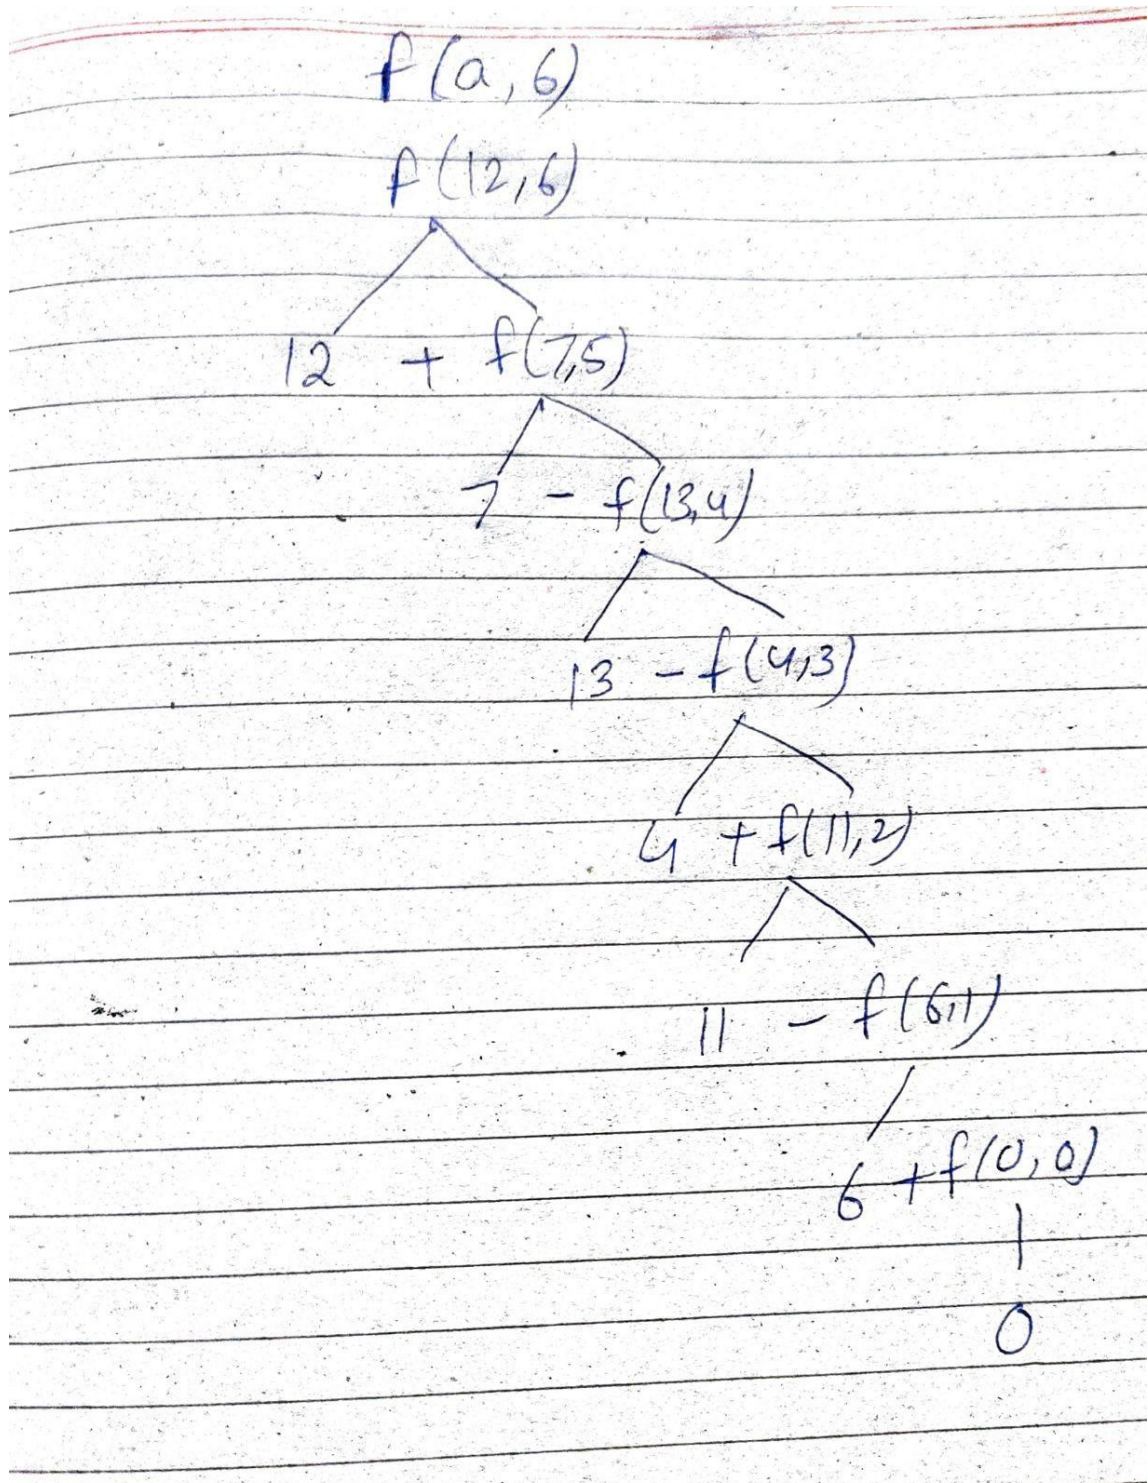 f(a, 6)
f(12, 6)
12 + f(7,5)
7 - f(13,4)
13 - f(4,3)
4 + f(11,2)
11 - f(6,1)
6 + f(0,0)
0